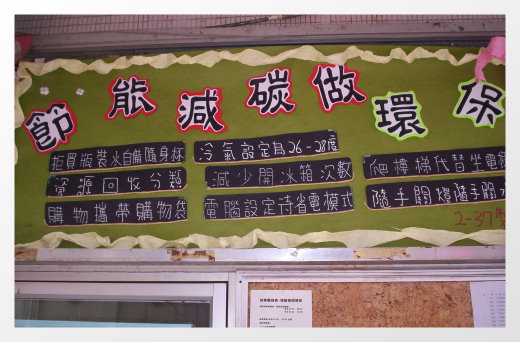 節能減碳做環保
拒買瓶裝水自備隨身杯
資源回收分類
購物攜帶購物袋
冷氣設定為26-28度
減少開冰箱次數
電腦設定待省電模式
爬樓梯代替坐電梯
隨手關燈隨手關水
2-37製